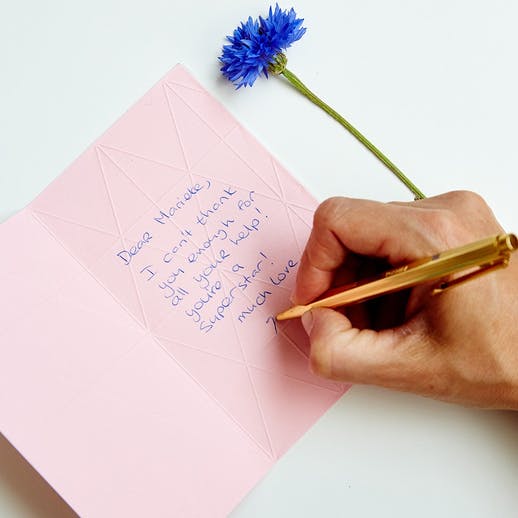 Dear Marieke,
I can't thank
you enough for
all your help!
You're a
superstar!
much love